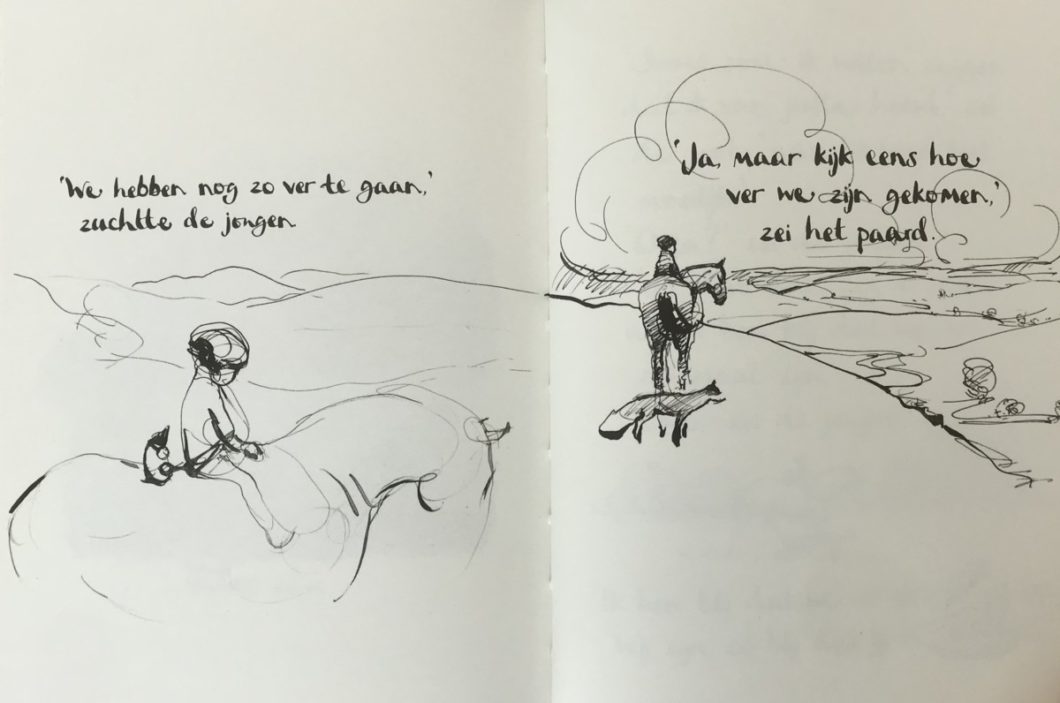 'We hebben nog zo ver te gaan,'
zuchtte de jongen.
'Ja, maar kijk eens hoe
ver we zijn gekomen,'
zei het paard.